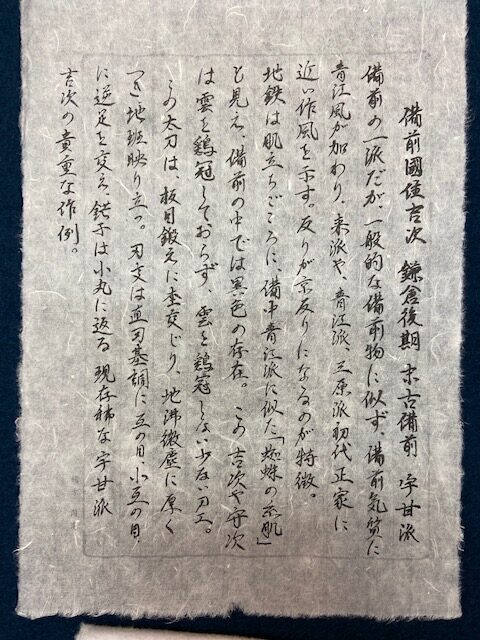 備前國住吉次 鎌倉後期 末古備前 宇甘派
備前の一派だが、一般的な備前物に似ず、備前気質に
青江風が加わり、来派や、青江派 三原派初代正家に
近い作風を示す。反りが京反りになるのが特徴。
地鉄は肌立ちごころに、備中青江派に似た「蜘蛛の糸肌」
も見え、備前の中では異色の存在。この吉次や守次
は雲を鶏冠しておらず、雲を鶏冠しない少ない刀工。
この太刀は、板目鍛えに杢交じり、地沸微塵に厚く
つき地斑映り立つ。刃文は直刃基調に互の目、小互の目
に逆足を交え、鋩子は小丸に返る 現存稀な宇甘派
吉次の貴重な作例。